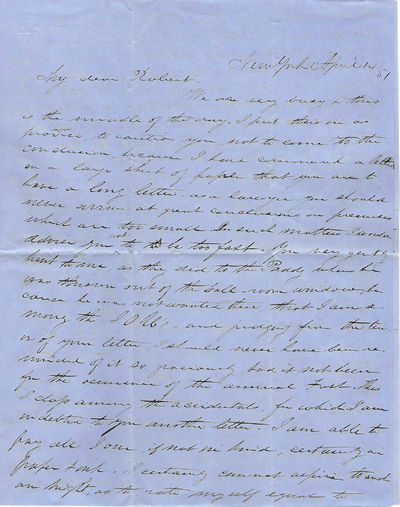 New York April 14/51
My dear Robert.
We are very busy & this
is the middle of the day. I put this in as
proviso to caution you, not to come to the
conclusion, because I have commenced a letter
on a large sheet of paper that you are to
have a long letter. as a lawyer you should
never arrive at great conclusions on premises
which are too small. In such matters I would
advise you to be too fast. You very
hint to me, as they did to the Paddy when he
was thrown out of the Ball room window, be
cause he was not wanted there, that I am a
mong the and judging from the ten
or of your letter I should never have been re
minded of it so graciously, had it not been
for the occurrence of the annual Fast. This
I class among the accidentals, for which I am
indebted to you another letter. I am able to
pay all I owe, if not in kind, certainly in
paper & ink. I certainly cannot aspire to such
an height, as to rate myself equal to